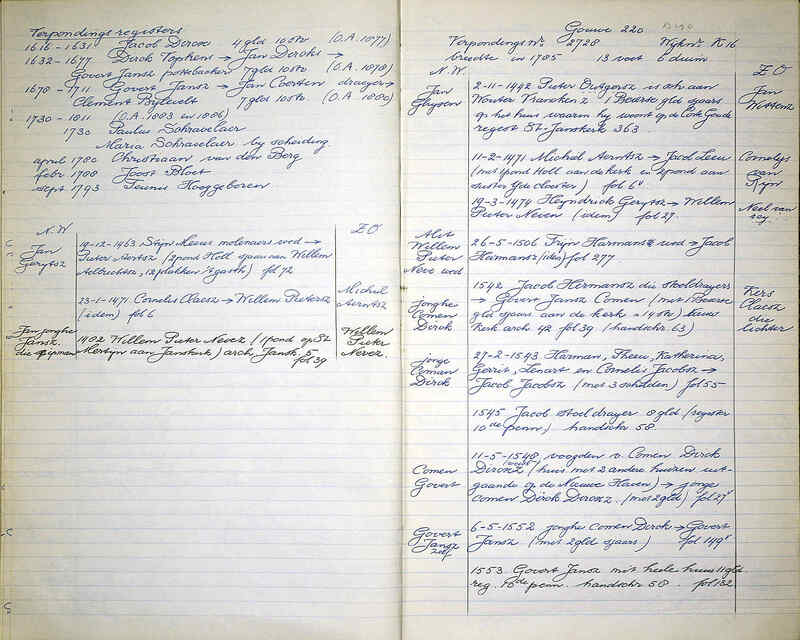 Verpondings registers
1616 - 1631 Jacob Dircxz 4 gld 10 st (O.A. 1877)
1632 - 1677 Dirck Tophens → Jan Dircks →
Govert Jansz pottebacker 7 gld 10 st (O.A. 1878)
1678 - 1711 Govert Jansz → Jan Coerten drayer →
Clement Bijlevelt 7 gld 10 st (O.A. 1880)
1730 - 1811 (O.A. 1883 en 1886)
1730 Paulus Schravelaer
Maria Schravelaer by scheiding
april 1780 Christiaan van den Berg
febr 1788 Joost Bloet
sept 1793 Teunis Hooggeboren
N.W ZO
Jan
Gerytsz
19-12-1463 Stijn Leeus molenaers wed →
Pieter Aertsz (2 pond Holl sjaars van Willem
Aelbrechtsz, 12 plakken) fol 72
23-1-1471 Cornelis Claesz → Willem Pietersz
(idem) fol 6
Michiel
Aerntsz
Jan jonghe
Jansz.
die
1482 Willem Pieter Nevez (1 pond op St
Mertijn aan Janskerk) arch Jansk. 5
fol 39
Willem
Pieter
Nevez.
Gouwe 220
Verpondings Nr. 2728 Wijk nr. K 16
breedte in 1785 13 voet 6 duim
N.W. ZO
Jan
Ghysen
2-11-1442 Pieter Dircgersz is sch. aan
Wouter Vranckenz 1 Beierse gld sjaars
op het huis waarin hy woont op de Oost Goude
regest St. Janskerk 363
Jan
Wittenz
11-2-1471 Michiel Aerntsz → Jacob Leeu
(met 1 pond Holl aan de kerk en 2 pond aan
susters gde closter) fol 6v
Cornelys
van
Ryn
19-3-1474 Heyndrick Gerytsz → Willem
Pieter Neven (idem) fol 27
Neel van
Alit
Willem
Pieter
Neve wed
26-5-1506 Trijn Harmans wed → Jacob
Harmansz (idem) fol 277
jonghe
Comen
Dirck
1542 Jacob Hermansz die stoeldrayers
→ Govert Jansz Comen (met 1 Beierse
gld sjaars aan de kerk = 14 st)
kerk arch 42 fol 39 (handschr. 63)
Kers
Claesz
die
lichter
jonge
Coman
Dirck
27-2-1543 Harman, Theeu, Katherina,
Gerrit, Lenart en Cornelis Jacobsz →
Jacob Jacobsz (met 3 schilden) fol 55
1545 Jacob stoeldrayer 8 gld (register
10de penn) handschr 58
Comen
Govert
11-5-1548 voogden v. Comen Dirck
Dircxz (huis met 2 andere huizen uit-
gaande op de Nieuwe Haven) → jonge
comen Dirck Dircxz. (met 2 gld) fol 27v
Govert
Jansz
zelf
6-5-1552 jonghe comen Dirck → Govert
Jansz (met 2 gld sjaars) fol 149v
1553 Govert Jansz mit heele huus 11 gld.
reg. 10de penn. handschr 58. fol 132